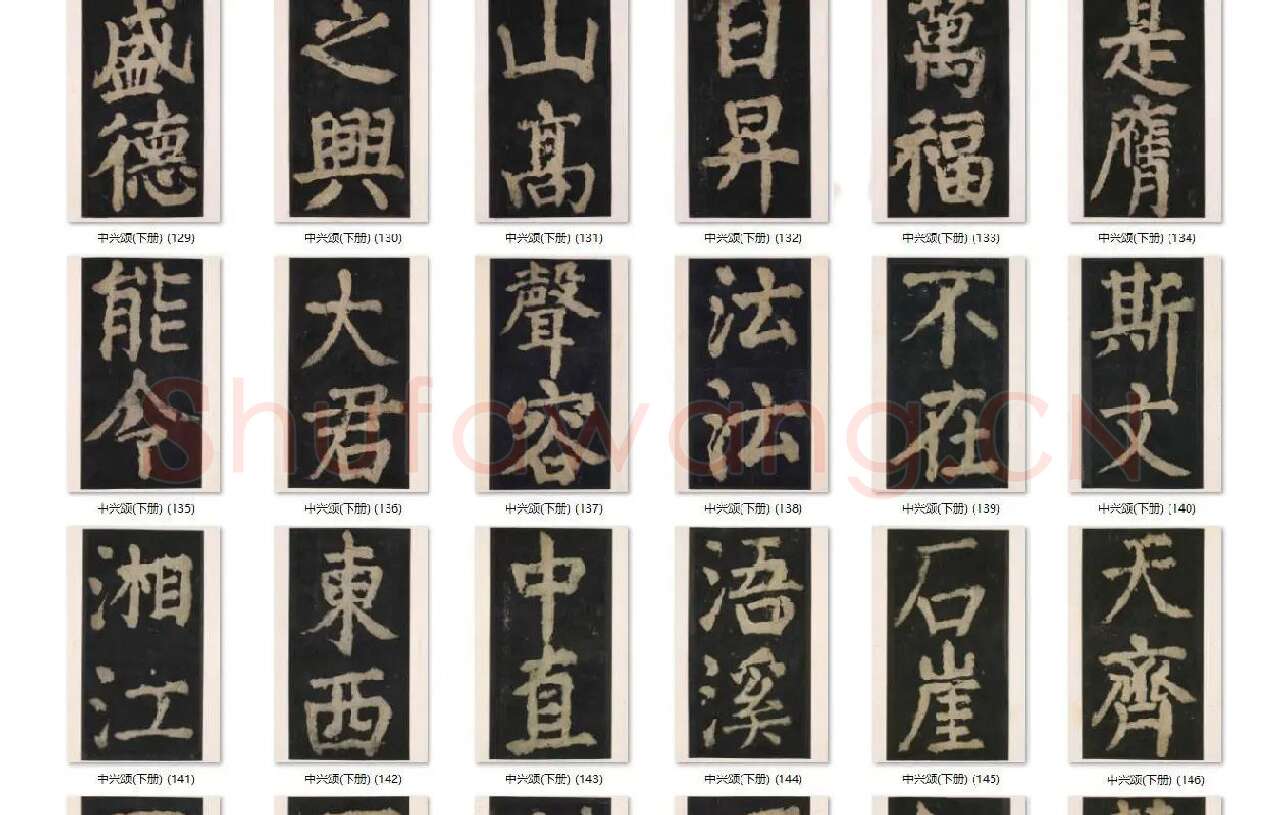 盛德 之興 山高 日昇 萬福 是膺
中兴颂(下册) (129) 中兴颂(下册) (130) 中兴颂(下册) (131) 中兴颂(下册) (132) 中兴颂(下册) (133) 中兴颂(下册) (134)
能令 大君 聲容 沄沄 不在 斯文
Shufawang.CN
中兴颂(下册) (135) 中兴颂(下册) (136) 中兴颂(下册) (137) 中兴颂(下册) (138) 中兴颂(下册) (139) 中兴颂(下册) (140)
湘江 東西 中直 浯溪 石崖 天齊
中兴颂(下册) (141) 中兴颂(下册) (142) 中兴颂(下册) (143) 中兴颂(下册) (144) 中兴颂(下册) (145) 中兴颂(下册) (146)